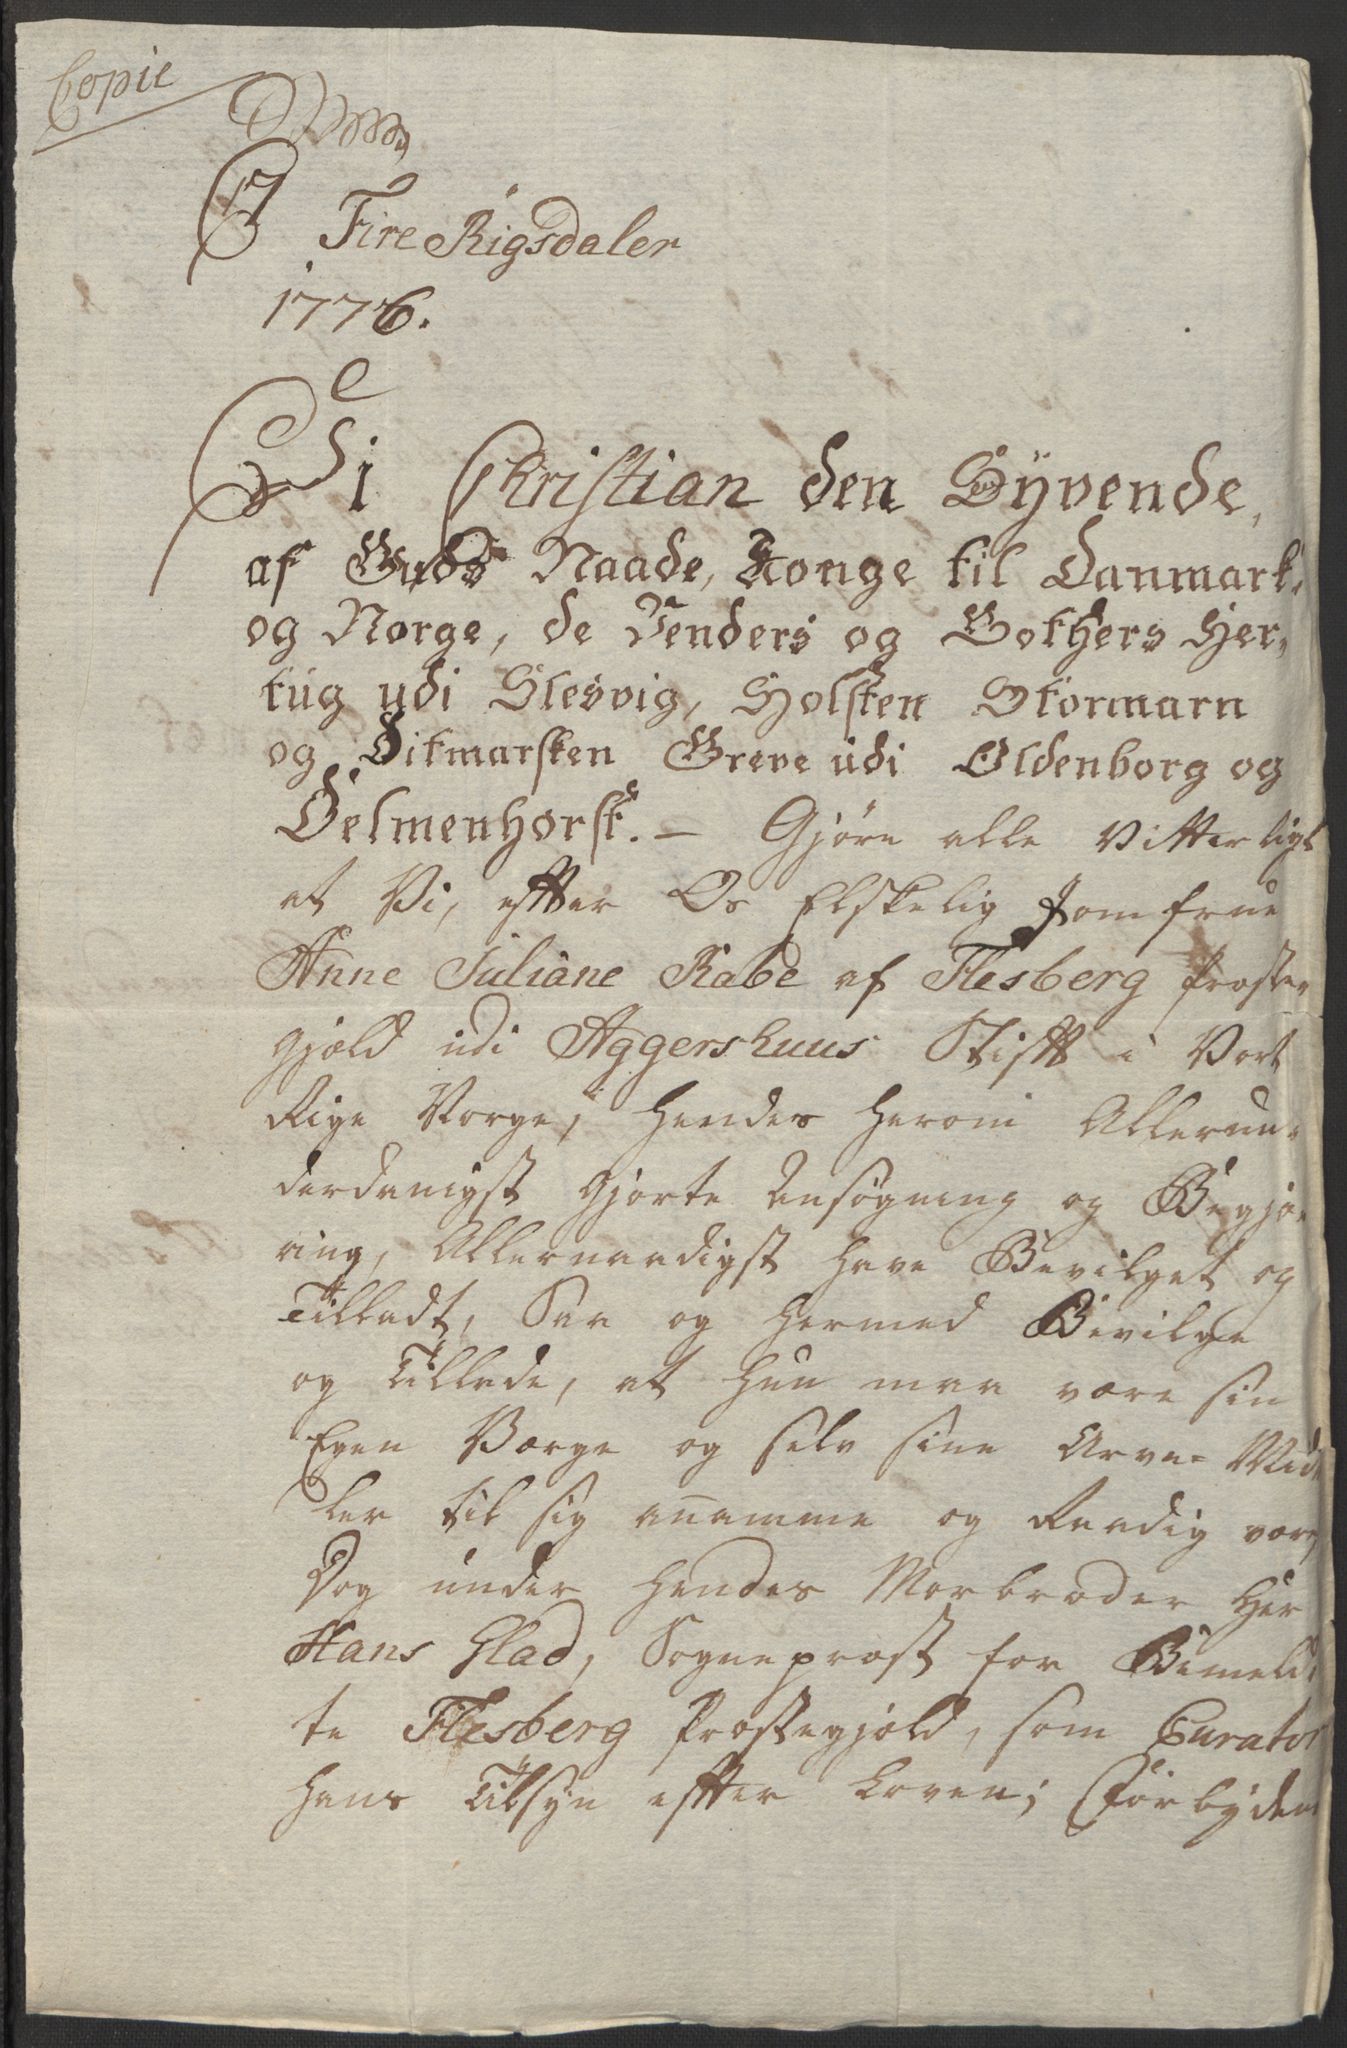 Copie
Fire Rigsdaler
1776.
Vi Christian den Syvende,
af Guds Naade, Konge til Danmark,
og Norge, de Venders og Gothers Her-
tug udi Slesvig, Holsten Stormarn
og Ditmarsken Greve udi Oldenborg og
Delmenhorst. – Giøre alle Vitterligt
at Vi, efter Os Elskelig Jomfrue
Anne Juliane Rabe af Flesberg Præste-
gjæld udi Aggershuus Stift i Vort
Rige Norge, hendes herom Allerun-
derdanigst gjorte Ansøgning og Begjæ-
ring, Allernaadigst have Bevilget og
Tilladt, Saa og hermed Bevilge
og Tillade, at hun maa være sin
Egen Værge og selv sine Arve-Mid-
ler til sig annamme og Raadig være,
Dog under hendes Morbroder Her
Hans Glad, Sognepræst for Bemeld-
te Flesberg Præstegjæld, som Curator
hans Tilsyn efter Loven; Forbydende